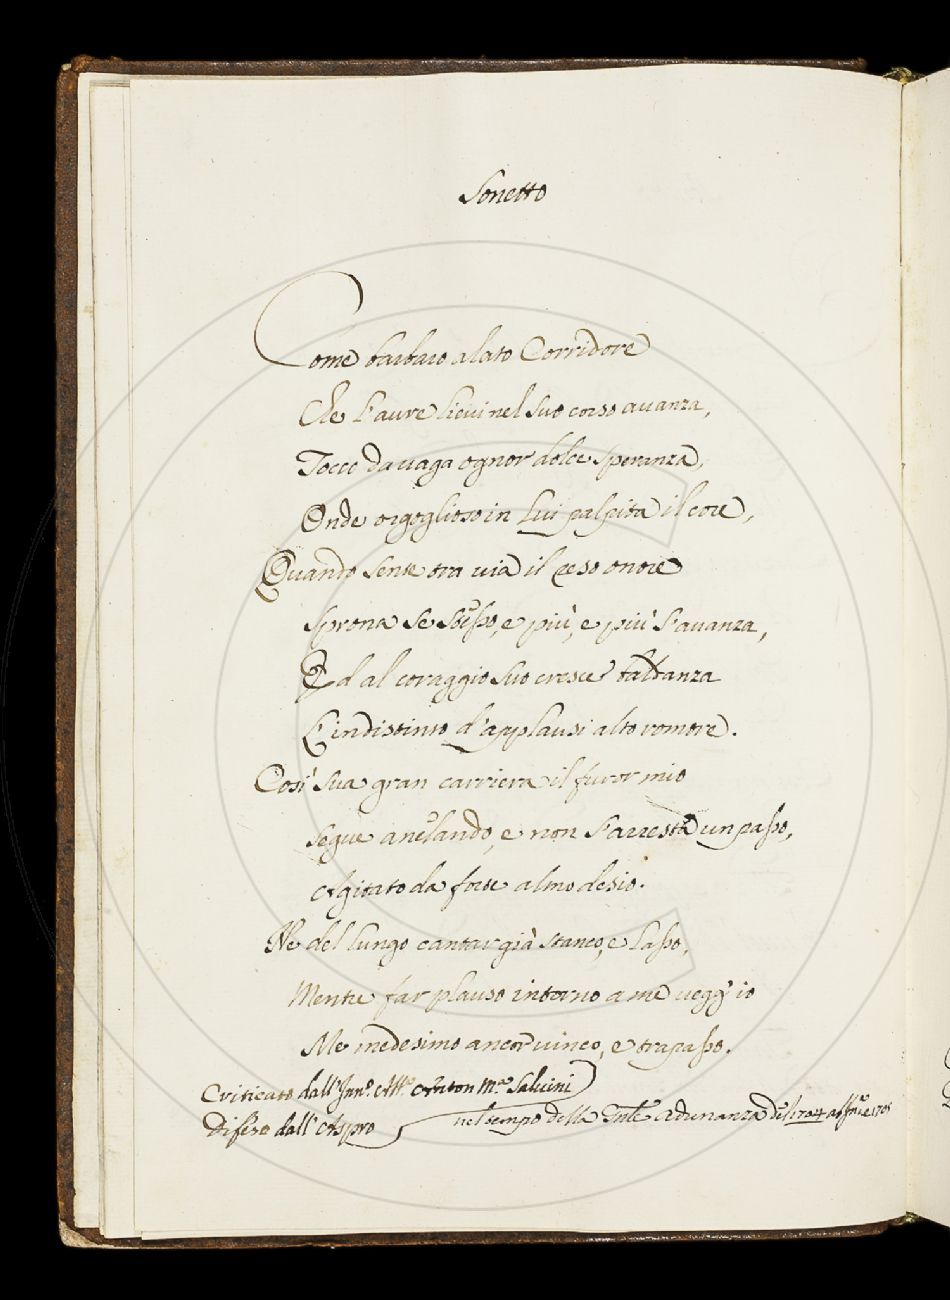 Sonetto
Come barbaro alato Corridore
Che l'aure lievi nel suo corso avanza,
Tocco da vaga ognor dolce speranza,
Onde orgoglioso in Lui palpita il core,
Quando sente tra via il reso onore
Sprona se stesso, e più, e più s'avanza,
Ed al coraggio suo cresce baldanza
L'indistinto d'applausi alto romore.
Così sua gran carriera il furor mio
Segue anelando, e non s'arresta un passo,
Agitato da forte almo desio.
Ne del lungo cantar già stanco, e lasso,
Mentre far plauso intorno a me veggio
Me medesimo ancor vinco, e trapasso.
Criticato dall' Inno. Abte. Anton Ma. Salvini
Difeso dall' Aspro nel tempo della Adunanza 1704